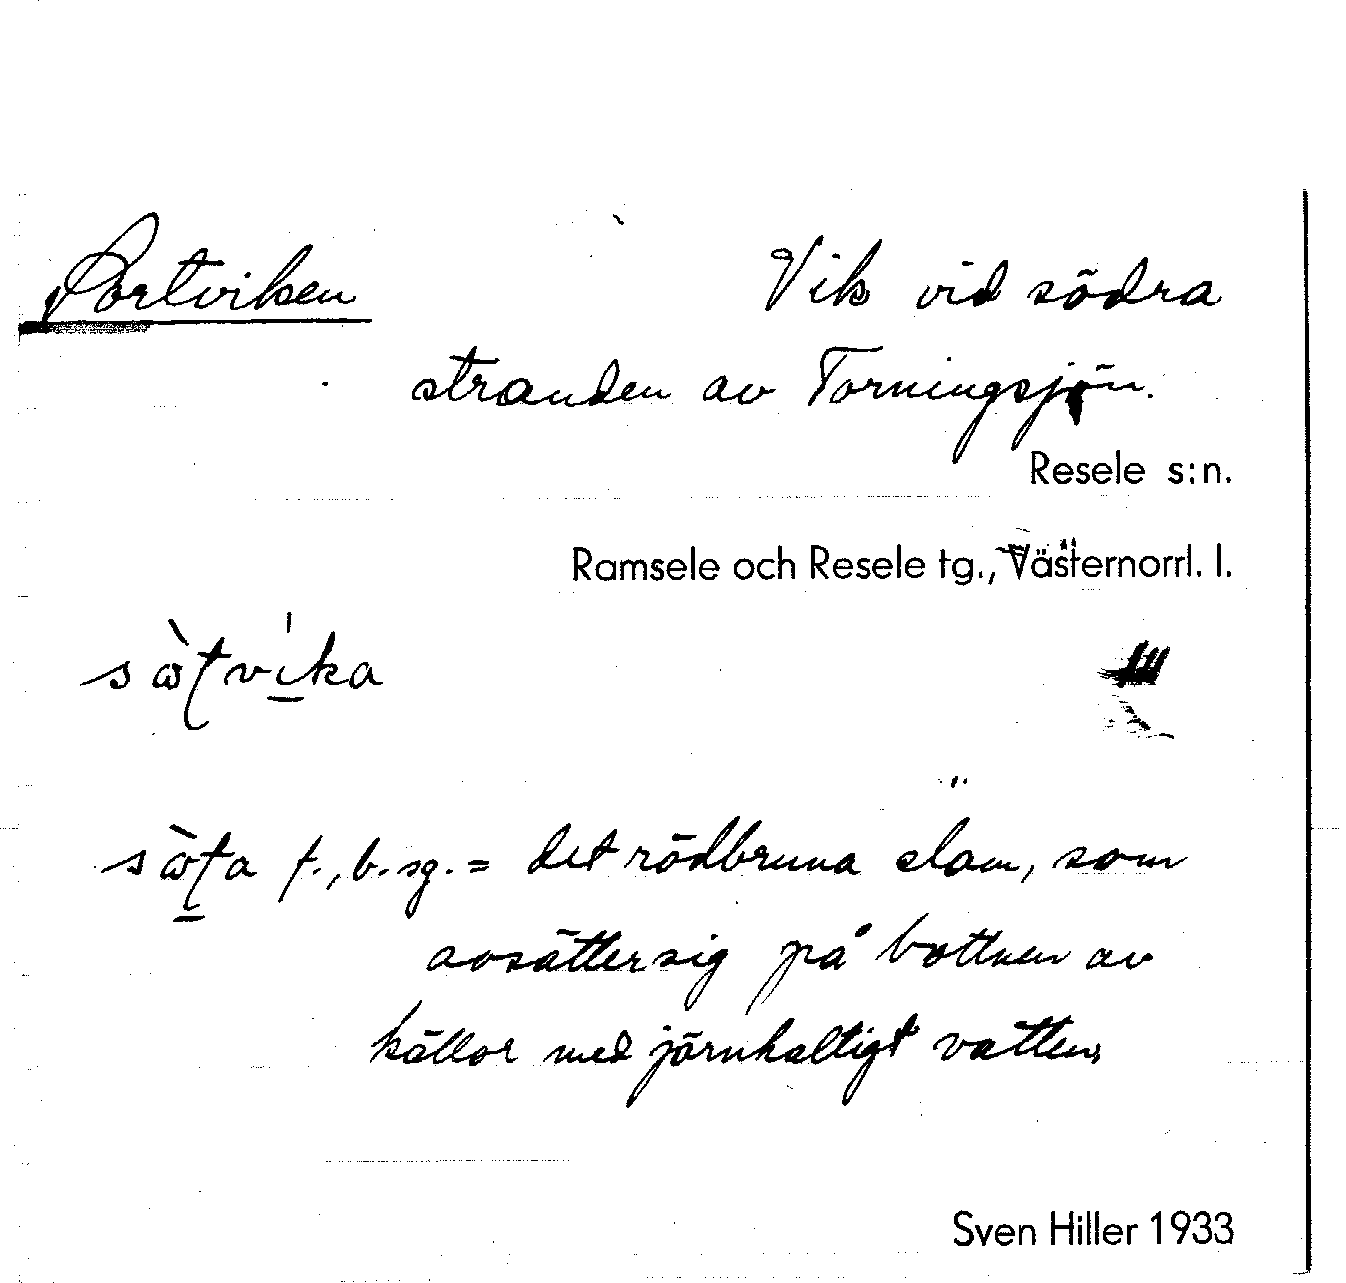 Sortviken
Vik vid södra
stranden av Torningsjön.
Resele s:n.
Ramsele och Resele tg., Västernorrl. l.
f., b. sg. = det rödbruna slam, som
avsätter sig på bottnen av
källor med järnhaltigt vatten
Sven Hiller 1933